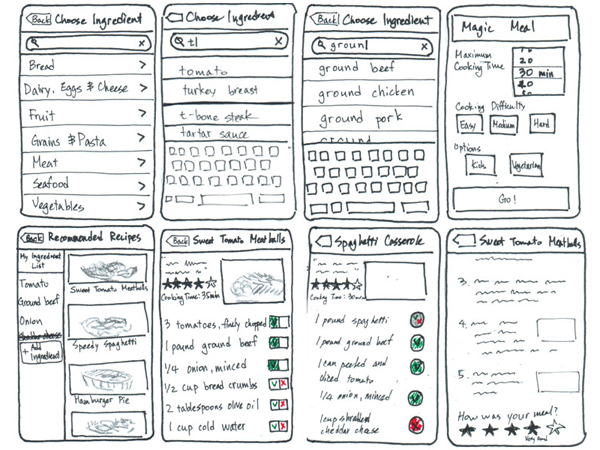 Back Choose Ingredient
x
Bread >
Dairy, Eggs & Cheese >
Fruit >
Grains & Pasta >
Meat >
Seafood >
Vegetables >
Choose Ingredient
t| x
tomato
turkey breast
t-bone steak
tartar sauce
Back Choose Ingredient
groun| x
ground beef
ground chicken
ground pork
ground
Magic Meal
Maximum
Cooking Time:
10
20
30 min
40
50
Cooking Difficulty
Easy Medium Hard
Options
Kids Vegetarian
Go!
Back Recommended Recipes
My Ingredient
List
Tomato
Ground beef
Onion
cheddar cheese
+ Add
Ingredient
Sweet Tomato Meatballs
Speedy Spaghetti
Hamburger Pie
Back Sweet Tomato Meatballs
Cooking Time: 35min
3 tomatoes, finely chopped
1 pound ground beef
1/4 onion, minced
1/2 cup bread crumbs
2 tablespoons olive oil
1 cup cold water
Spaghetti Casserole
Cooking Time: 30min
1 pound spaghetti
1 pound ground beef
1 can peeled and
diced tomato
1/4 onion, minced
1 cup shredded
cheddar cheese
Sweet Tomato Meatballs
3.
4.
5.
How was your meal?
Very Good